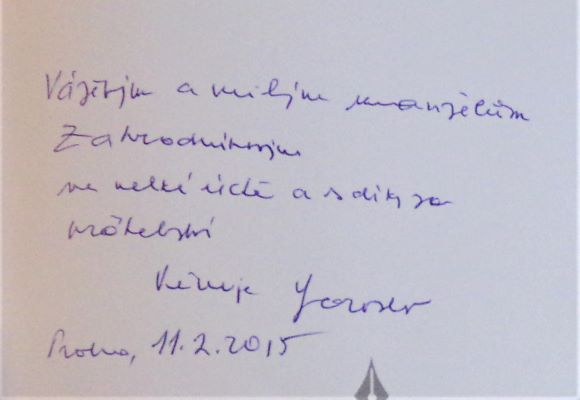 Váženým a milým manželům
Zahradníkovým
ve velké úctě a s díky za
přátelství
Věnuje Jaroslav
Praha, 11.2.2015